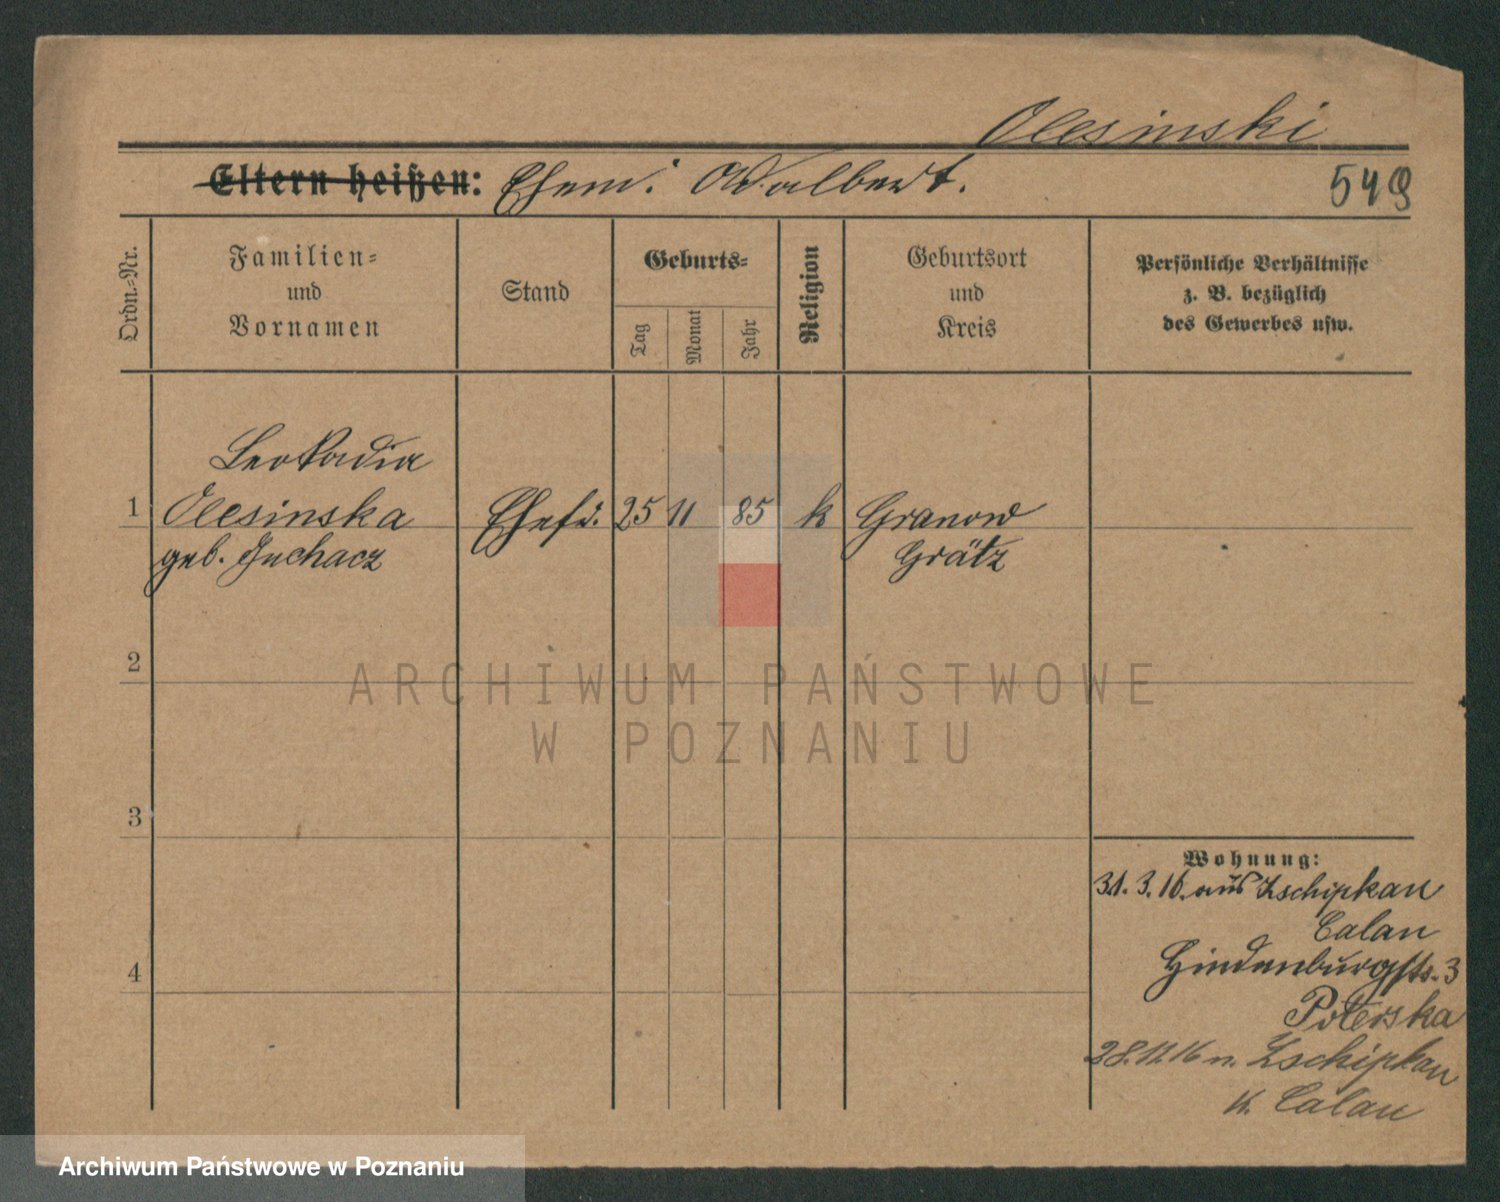 Olesinski
Eltern heißen: Ehem. Walbert.
549
Ordn.-Nr.
Familien-
und
Vornamen
Stand
Geburts-
Tag
Monat
Jahr
Religion
Geburtsort
und
Kreis
Persönliche Verhältnisse
z. B. bezüglich
des Gewerbes usw.
Leokadia
1 Olesinska Ehefr. 25 11 85 k Granow
geb. Juchacz Grätz
2
ARCHIWUM PAŃSTWOWE
W POZNANIU
3
Wohnung:
31. 3. 16. aus Zschipkau
Calau
4
Hindenburgstr. 3
Poterska
28.11.16 n. Zschipkau
K. Calau
Archiwum Państwowe w Poznaniu